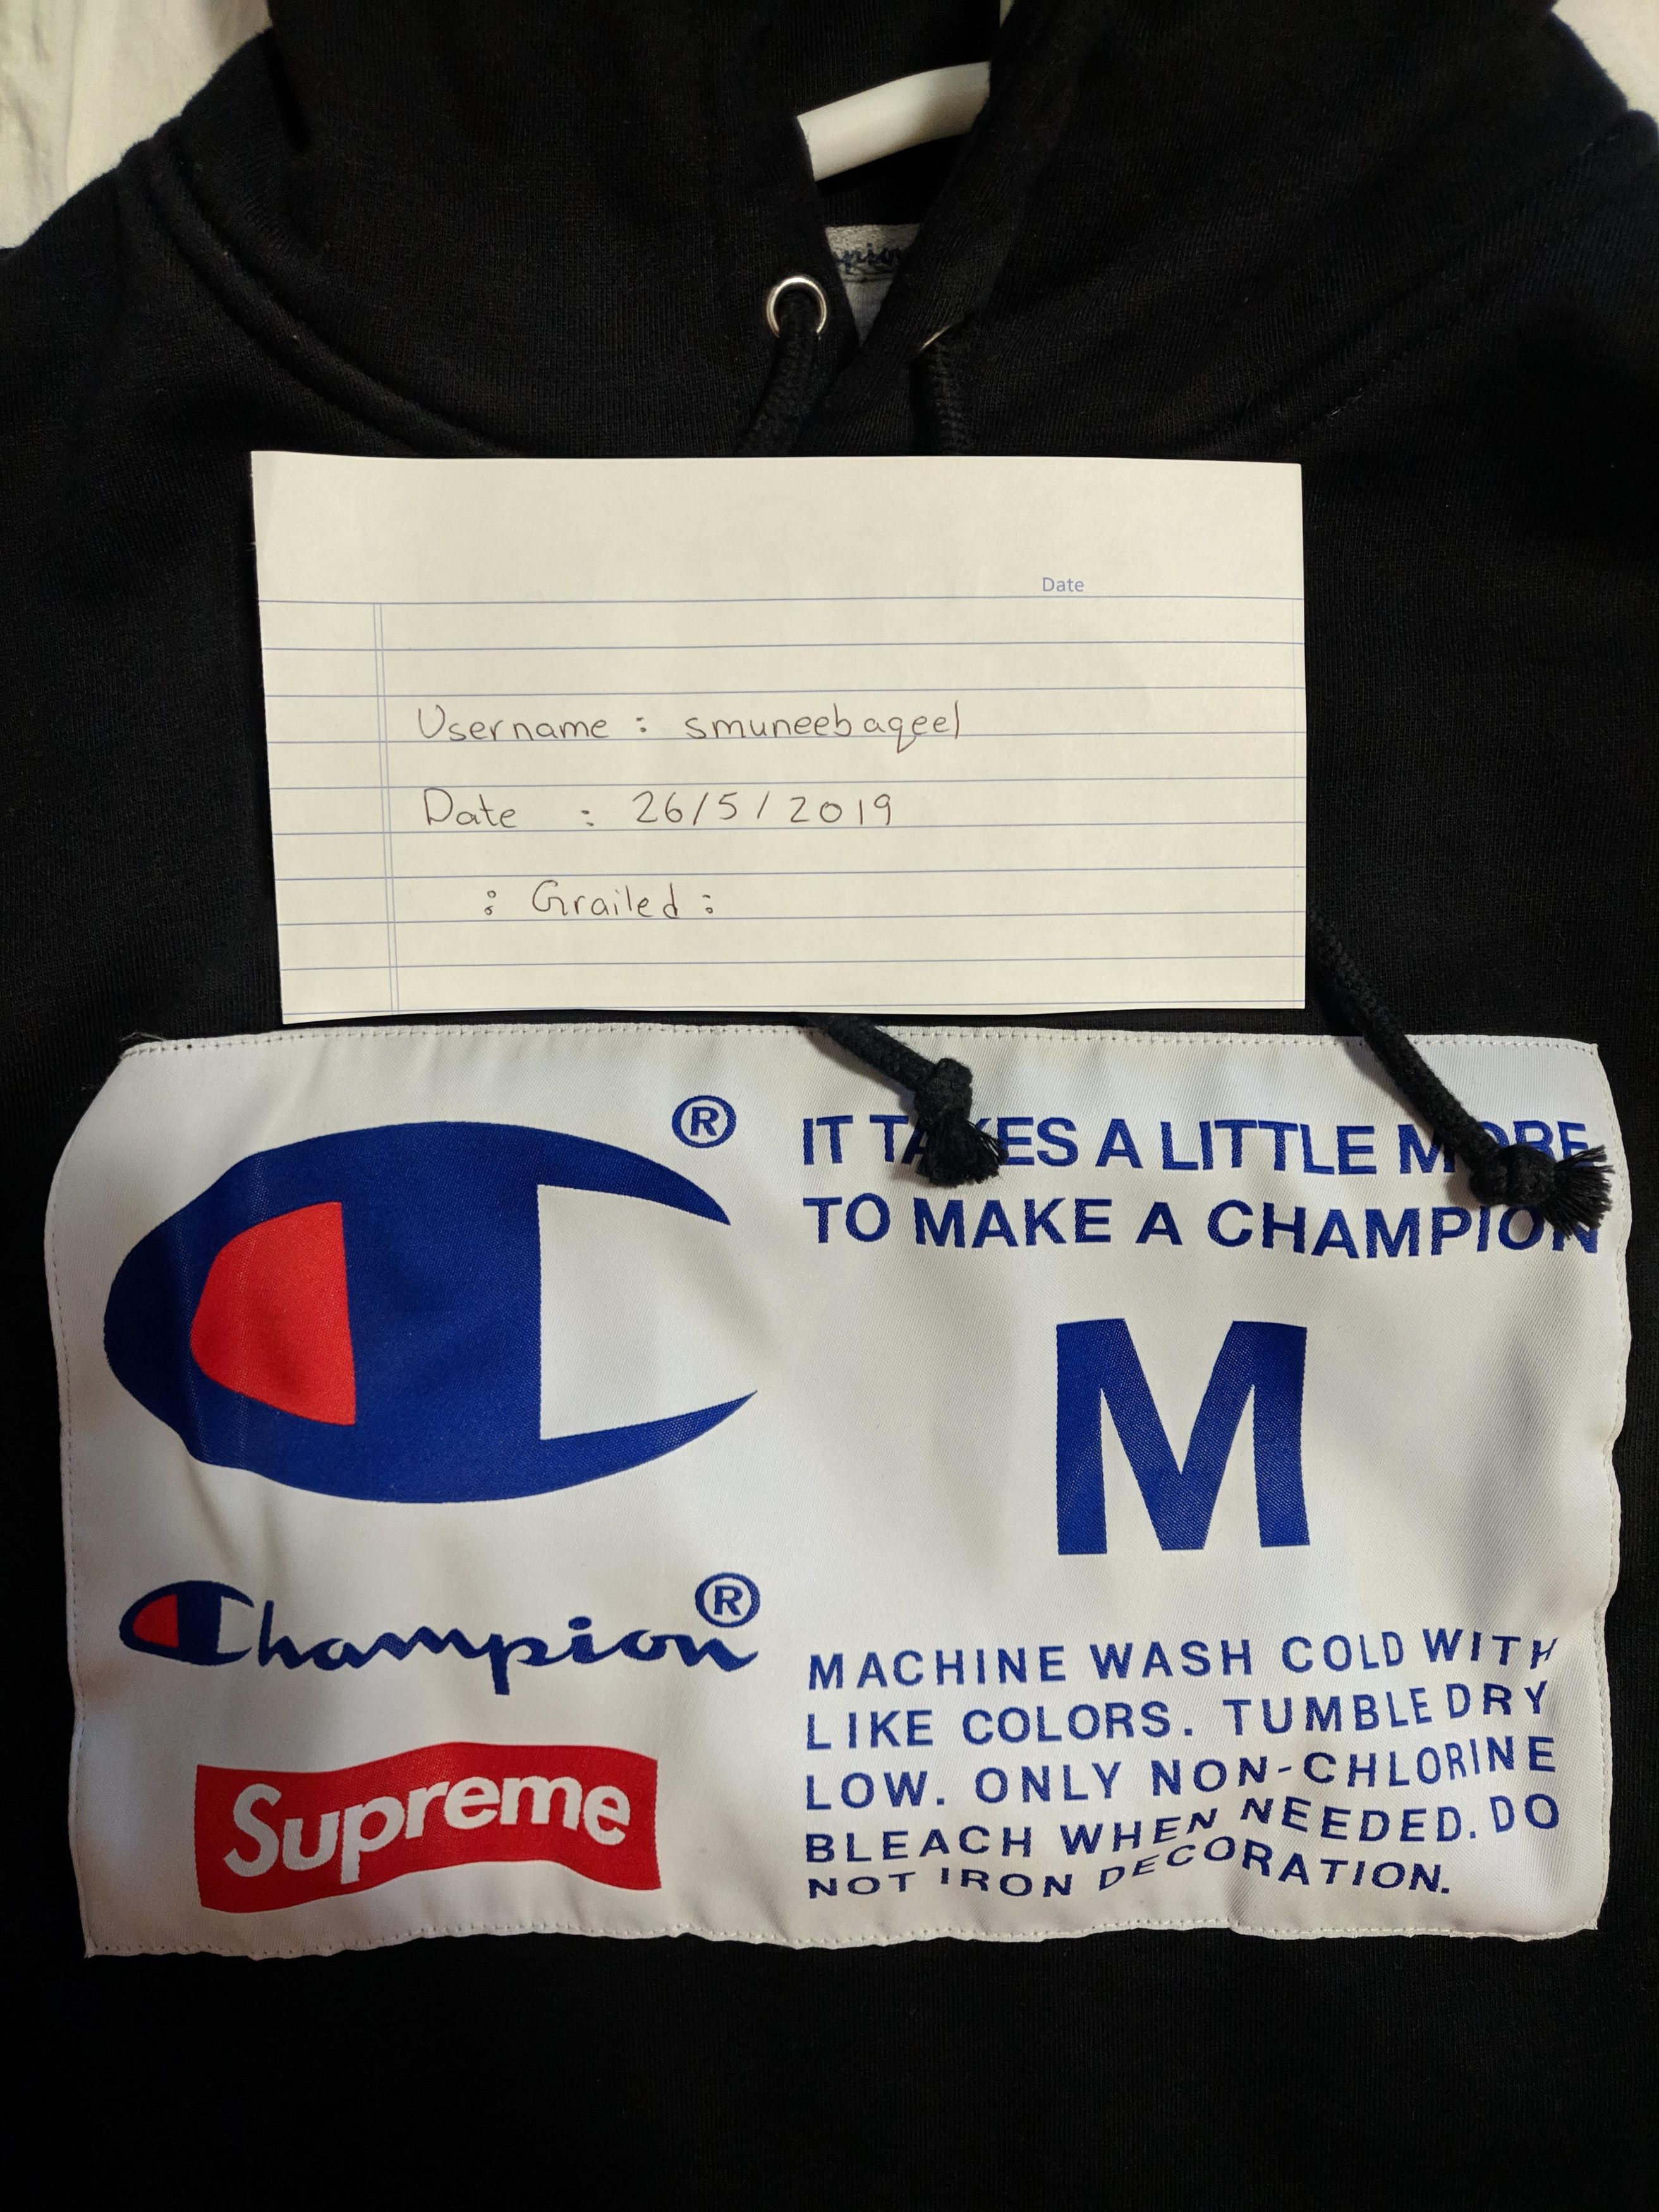 pion
Date
Username : smuneebaqeel
Date : 26/5/2019
: Grailed :
®
IT TAKES A LITTLE MORE
TO MAKE A CHAMPION
M
Champion®
Supreme
MACHINE WASH COLD WITH
LIKE COLORS. TUMBLE DRY
LOW. ONLY NON-CHLORINE
BLEACH WHEN NEEDED. DO
NOT IRON DECORATION.